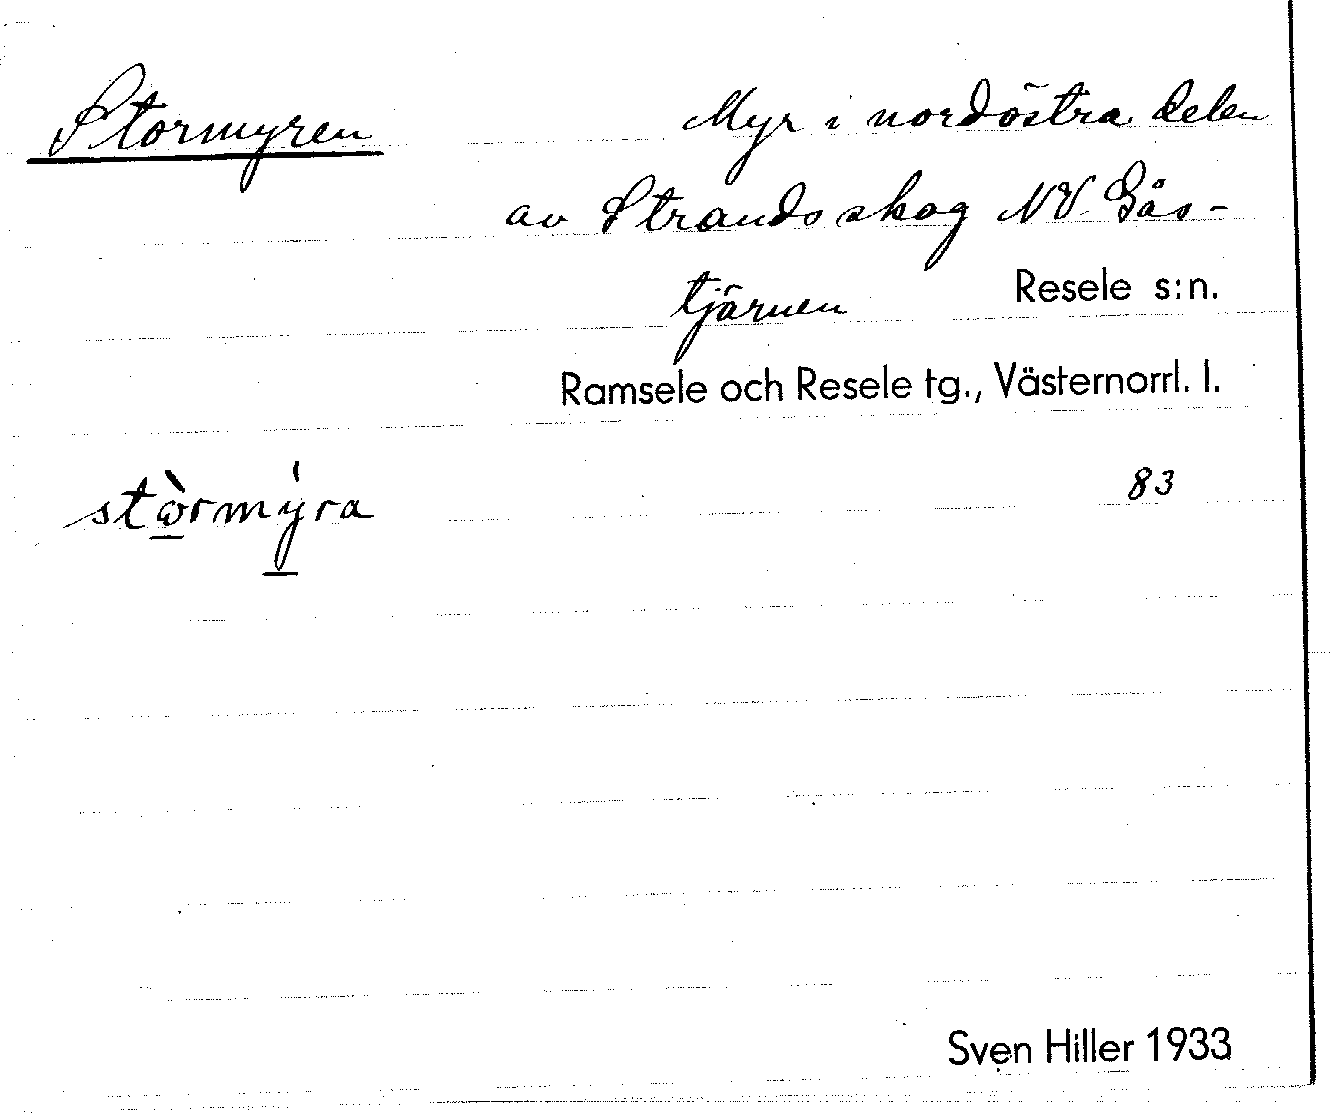 Stormyren Myr i nordöstra delen
av Strandsskog NV Gås-
tjärnen Resele s:n.
Ramsele och Resele tg., Västernorrl. l.
stò̱rmý̱ra 83
Sven Hiller 1933